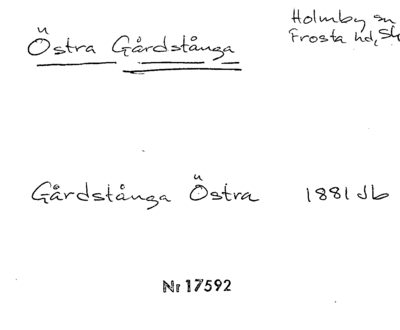 Östra Gårdstånga
Holmby sn
Frosta hd, Sk
Gårdstånga Östra 1881 Jb
Nr 17592